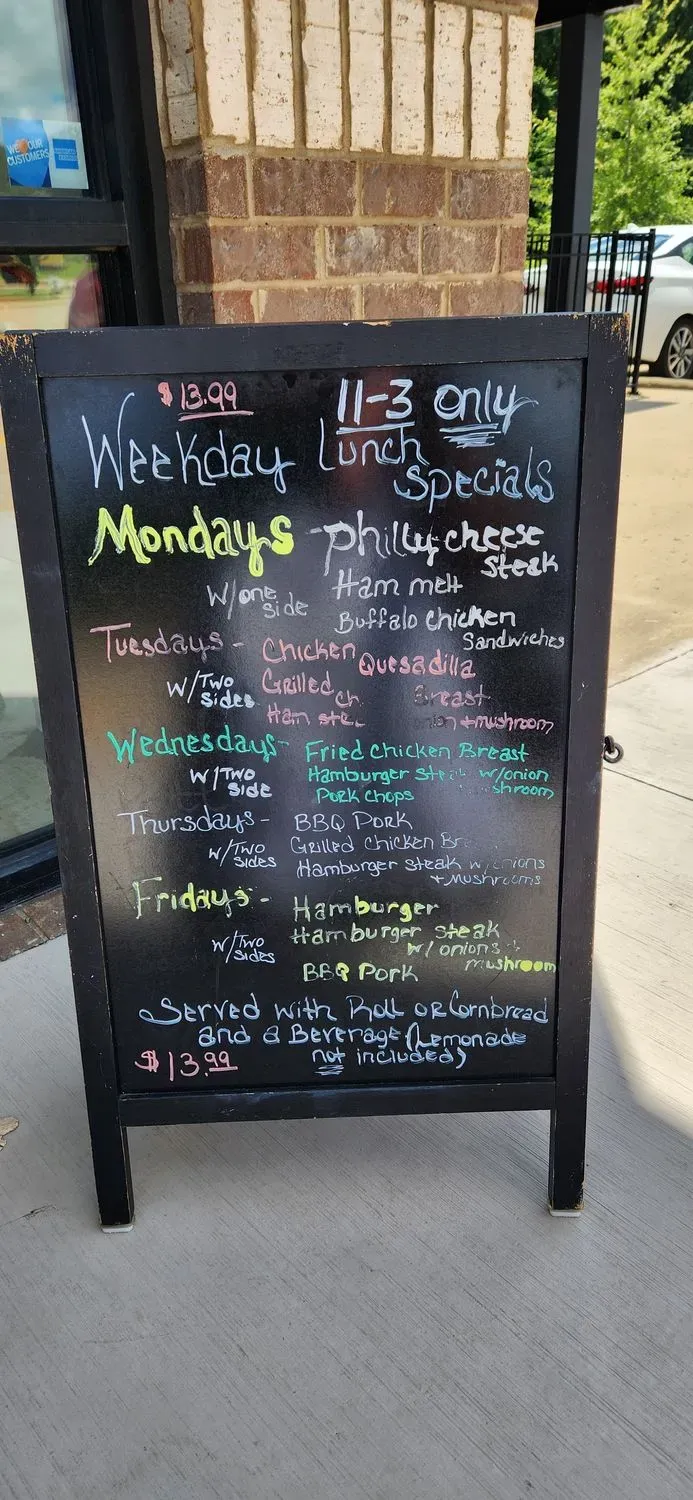 WE OUR
CUSTOMERS
$13.99
11-3 only
Weekday lunch
specials
Mondays - philly cheese
steak
w/one
side
Ham melt
Buffalo chicken
Sandwiches
Tuesdays - Chicken Quesadilla
w/Two
sides
Grilled ch Breast
Ham ste + mushroom
Wednesdays - Fried Chicken Breast
w/Two
side
Hamburger Ste w/onion
Pork Chops shroom
Thursdays - BBQ Pork
w/Two
sides
Grilled Chicken Br
Hamburger steak w/onions
+ Mushrooms
Fridays - Hamburger
w/Two
sides
Hamburger steak
w/ onions +
mushroom
BBQ Pork
Served with Roll or Cornbread
and a Beverage (Lemonade
not included)
$13.99